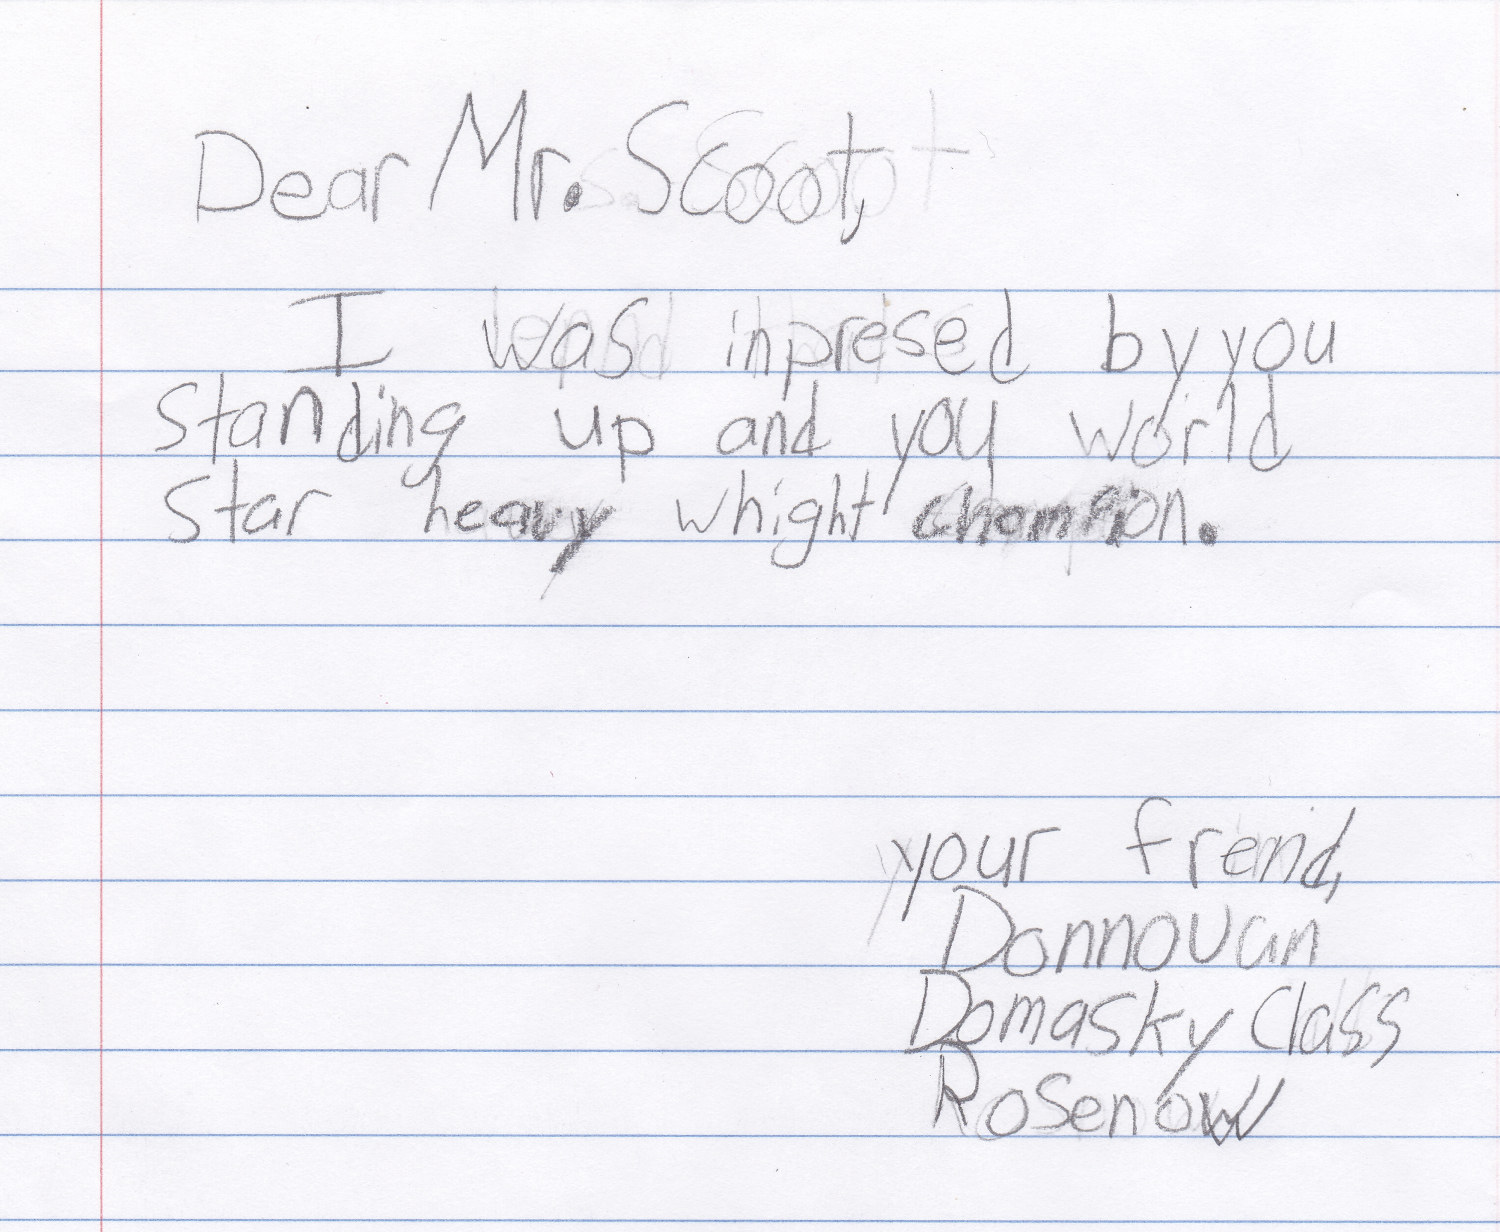 Dear Mr. Scoot,
I was inpresed by you
standing up and you world
star heavy whight champion.
your freind,
Donnovan
Domasky Class
Rosenow